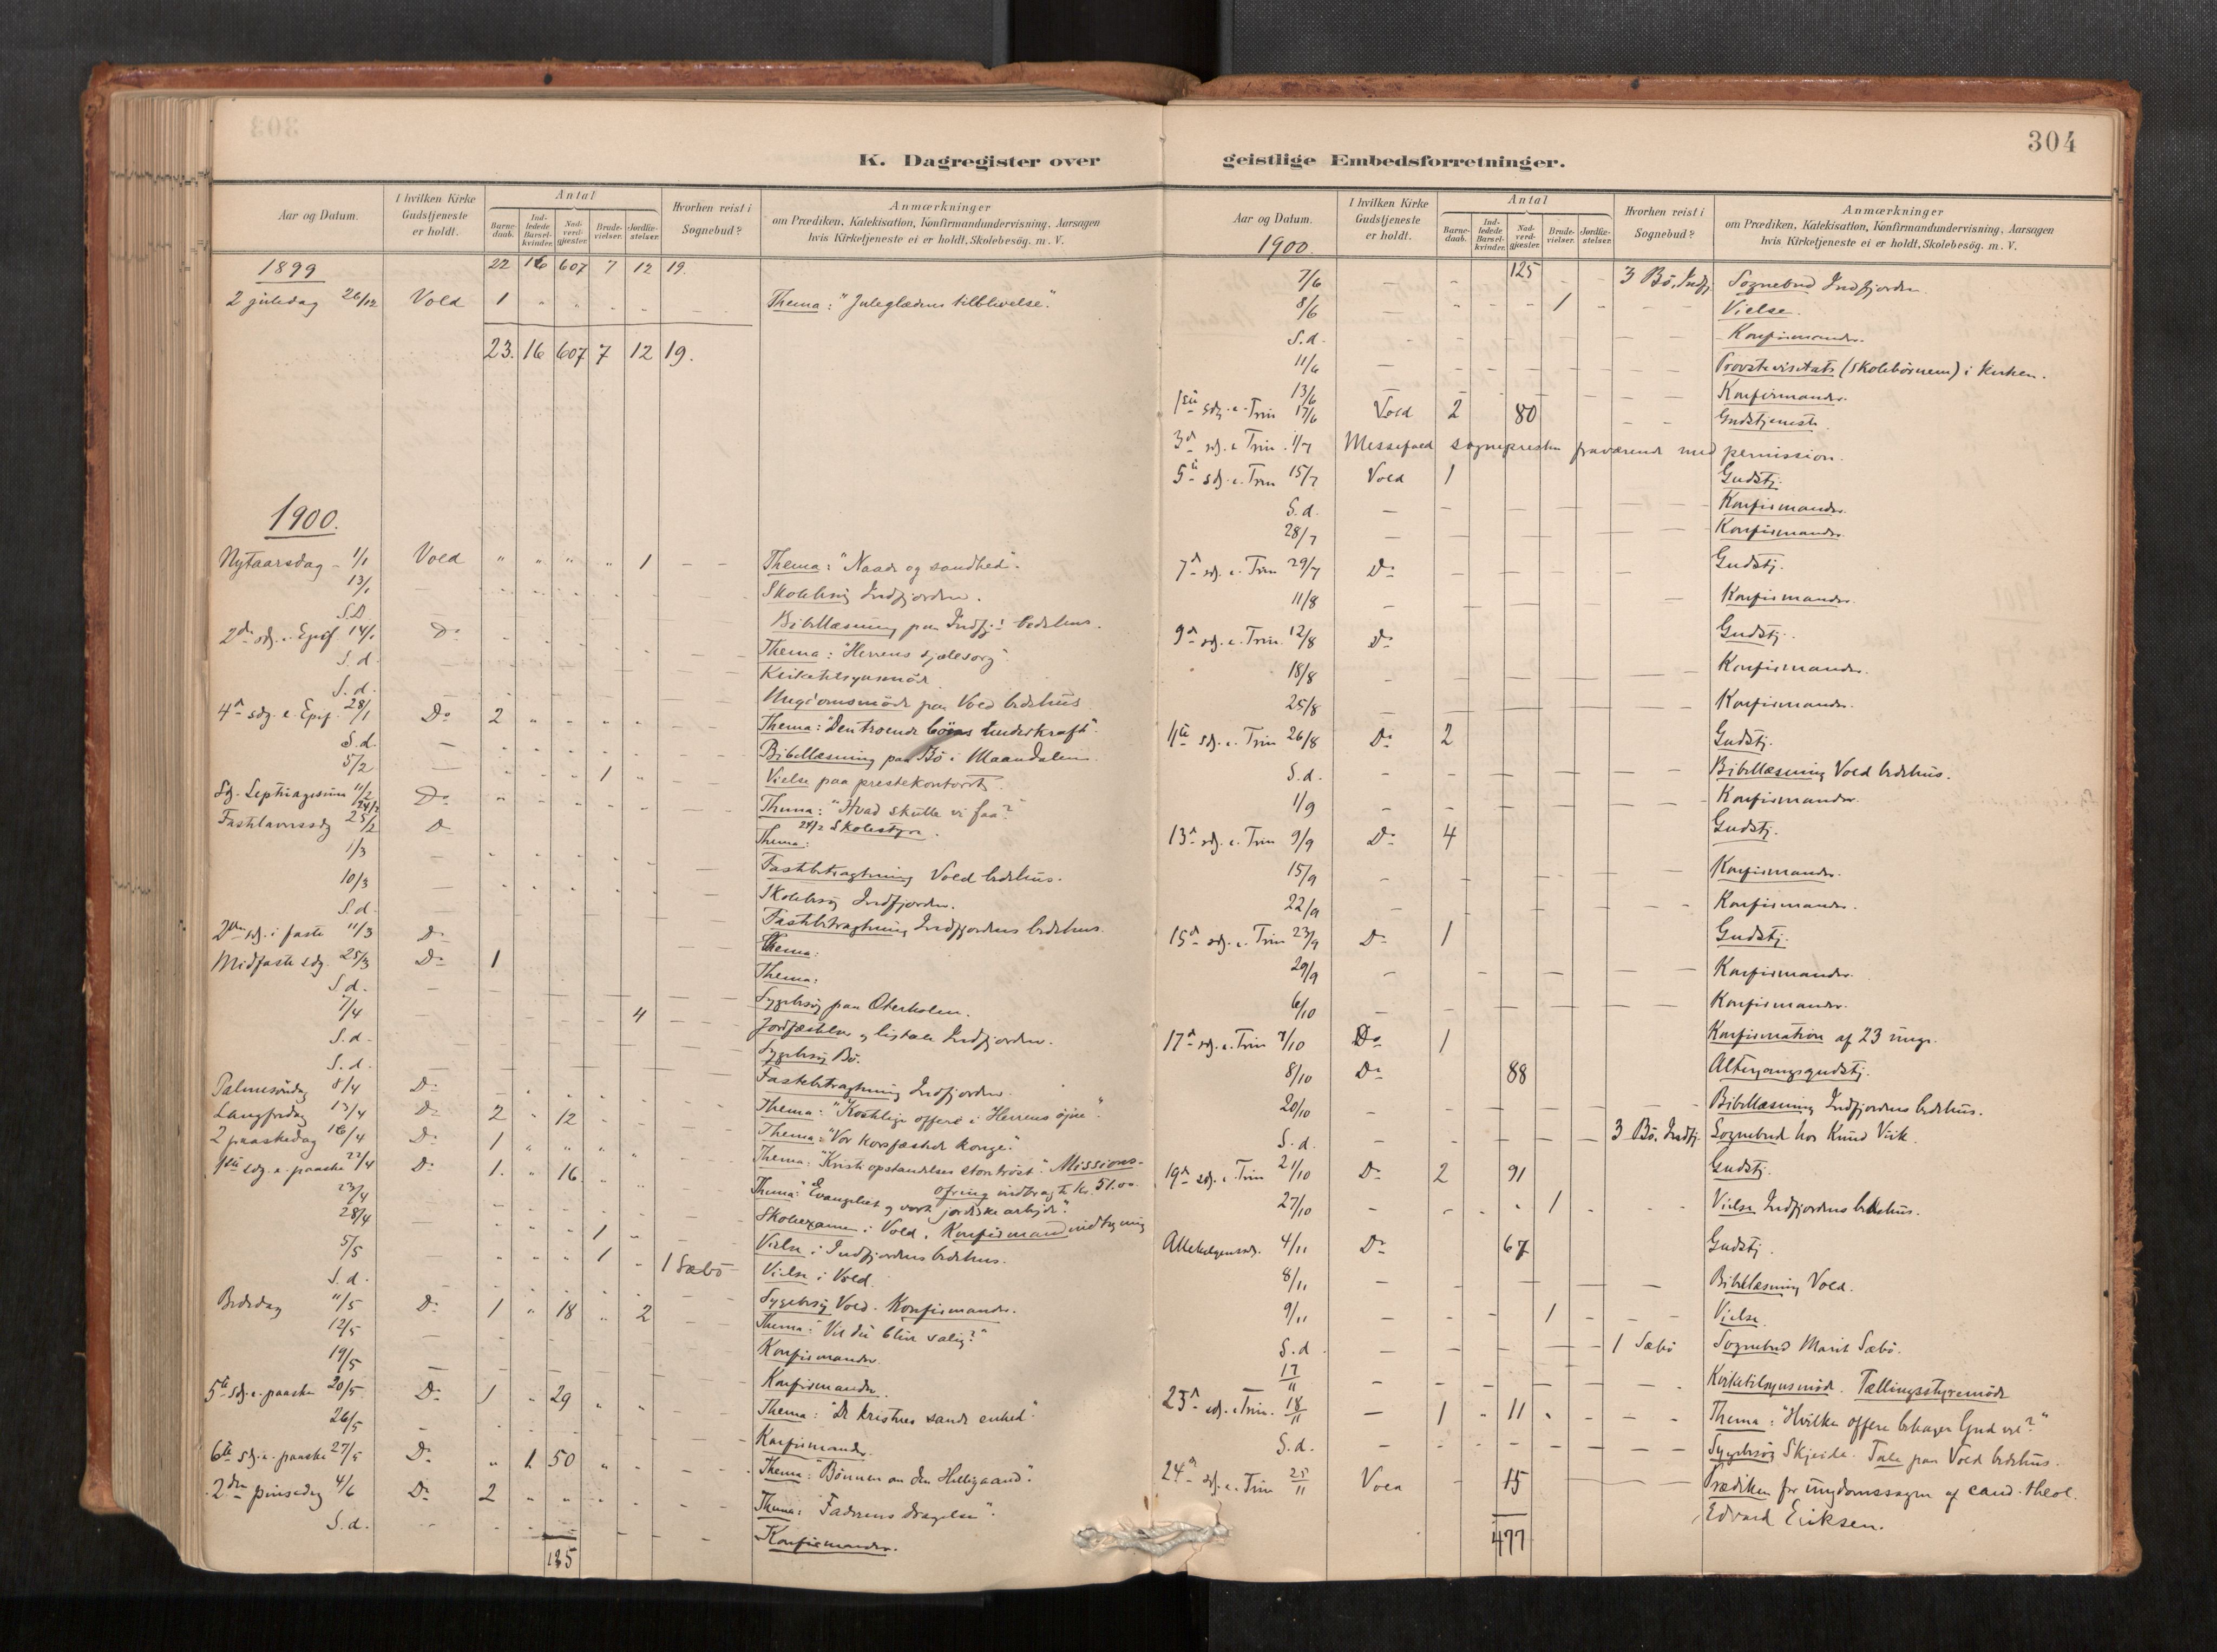 303
304
K. Dagregister over
geistlige Embedsforretninger.
Aar og Datum.
I hvilken Kirke Gudstjeneste er holdt.
Antal
Barnedaab.
Indledede Barselkvinder.
Nadverdgjæster.
Brudevielser.
Jordfæstelser.
Hvorhen reist i Sognebud?
Anmærkninger
om Prædiken, Katekisation, Konfirmandundervisning, Aarsagen
hvis Kirketjeneste ei er holdt, Skolebesög. m. V.
1899 22 16 607 7 12 19.
2 juledag 26/12 Vold 1 " " " " Thema: "Juleglædens tilblivelse".
23. 16 607 7 12 19.
1900.
Nytaarsdag - 1/1 Vold " " " " 1 Thema: "Naade og sandhed".
13/1 Skolebesög Indfjorden.
S.D. Bibellæsning paa Indfj. bedehus.
2den sdg. e. Epif 14/1 Do Thema: "Herrens sjælesorg".
S. d. Kirketilsynsmöde
S. d. Ungdomsmöde paa Vold bedehus
4de sdg. e. Epif. 28/1 Do 2 Thema: "Den troende böns underkraft".
S. d. Bibellæsning paa Bö i Maandalen.
5/2 1 Vielse paa prestekontoret.
Sdg. Septuagesima 11/2 Do Thema: "Hvad skulle vi faa?"
24/2 24/2 Skolestyre.
Fastelavnssdg 25/2 Do Thema:
1/3 Fastebetragtning Vold bedehus.
10/3 Skolebesög Indfjorden.
S. d. Fastebetragtning Indfjordens bedehus.
2den sdg. i faste 11/3 Do Thema:
Midfaste sdg. 25/3 Do 1 Thema:
S. d. Sygebesög paa Oterholm.
7/4 4 Jordfæstelse og ligtale Indfjorden.
S. d. Sygebesög Bö.
S. d. Fastebetragtning Indfjorden
Palmesöndag 8/4 Do Thema: "Kostelige offere i Herrens öjne".
Langfredag 13/4 Do 2 " 12 Thema: "Vor korsfæstede konge".
2 paaskedag 16/4 Do 1 Thema: "Kristi opstandelses store tröst". Missions-
ofring indbragte Kr. 51.00
1ste sdg. e. paaske 22/4 Do 1. " 16 Thema: "Evangeliet og vort jordiske arbejde".
23/4 Skoleexamen i Vold. Konfirmandindtegning
28/4 1 Vielse i Indfjordens bedehus.
5/5 1 Vielse i Vold.
S. d. 1 Sæbö Sygebesög Vold. Konfirmander.
Bededag 11/5 Do 1 " 18 " 2 Thema: "Vil du blive salig?"
12/5 Konfirmander.
19/5 Konfirmander.
5te sdg. e. paaske 20/5 Do 1 " 29 Thema: "De kristnes sande enhed".
26/5 Konfirmander.
6te sdg. e. paaske 27/5 Do " 1 50 Thema: "Bönnen om den Helligaand".
2den pinsedag 4/6 Do 2 Thema: "Faderens dragelse".
S. d. Konfirmander.
125
Aar og Datum.
I hvilken Kirke Gudstjeneste er holdt.
Antal
Barnedaab.
Indledede Barselkvinder.
Nadverdgjæster.
Brudevielser.
Jordfæstelser.
Hvorhen reist i Sognebud?
Anmærkninger
om Prædiken, Katekisation, Konfirmandundervisning, Aarsagen
hvis Kirketjeneste ei er holdt, Skolebesög. m. V.
1900.
125
7/6 3 Bö, Indfj. Sognebud Indfjorden.
8/6 1 Vielse.
S.d. Konfirmander.
11/6 Provstevisitats (skolebörnene) i kirken.
13/6 Konfirmander.
1ste sdg. e. Trin 17/6 Vold 2 80 Gudstjeneste.
3de sdg. e. Trin. 1/7 Messefald sognepresten fraværende med permission.
5te sdg. e. Trin 15/7 Vold 1 Gudstj.
S. d. Konfirmander.
28/7 Konfirmander.
7de sdg. e. Trin 29/7 Do Gudstj.
11/8 Konfirmander.
9de sdg. e. Trin. 12/8 Do Gudstj.
18/8 Konfirmander.
25/8 Konfirmander.
11te sdg. e. Trin 26/8 Do 2 Gudstj.
S. d. Bibellæsning Vold bedehus.
1/9 Konfirmander.
13de sdg. e. Trin 9/9 Do 4 Gudstj.
15/9 Konfirmander.
22/9 Konfirmander.
15de sdg. e. Trin 23/9 Do 1 Gudstj.
29/9 Konfirmander.
6/10 Konfirmander.
17de sdg. e. Trin 7/10 Do 1 Konfirmation af 23 unge.
8/10 Do 88 Altergangsgudstj.
20/10 Bibellæsning Indfjordens bedehus.
S. d. 3 Bö. Indfj. Sognebud hos Knud Vik.
19de sdg. e. Trin 21/10 Do 2 91 Gudstj.
27/10 1 Vielse Indfjordens bedehus.
Allehelgenssdg. 4/11 Do 67 Gudstj.
8/11 Bibellæsning Vold.
9/11 1 Vielse.
S. d 1 Sæbö Sognebud Marit Sæbö.
17/11 Kirketilsynsmöde. Tællingsstyremöde
23de sdg. e. Trin. 18/11 1 " 11 Thema: "Hvilke offere behager Gud vel?"
S. d. Sygebesög Skjeide. Tale paa Vold bedehus.
24de sdg. e. Trin 25/11 Vold 15 Prædiken for ungdomssagen af cand. theol.
Edvard Eriksen.
477